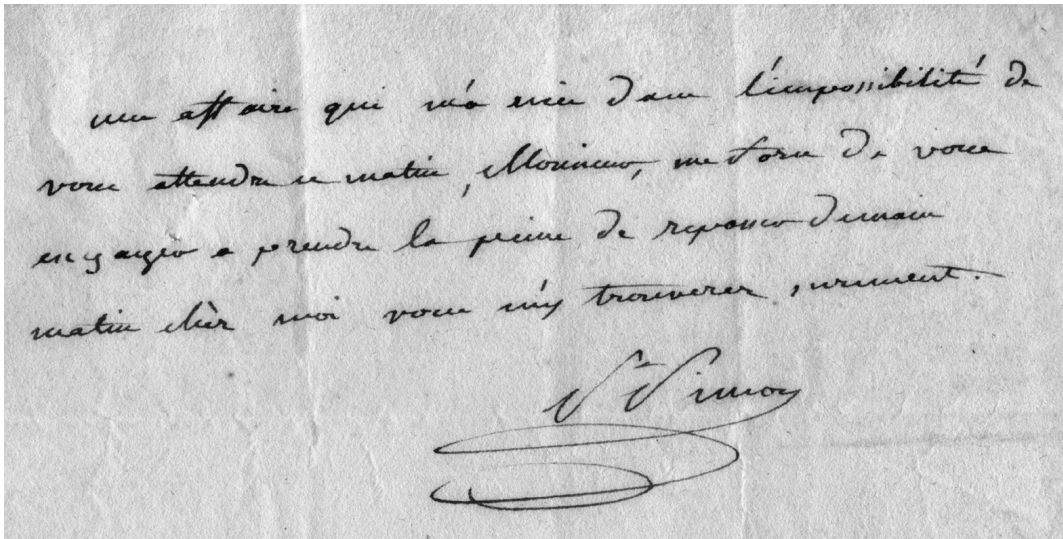 une affaire qui m'a mis dans l'impossibilité de
vous attendre ce matin, Monsieur, me force de vous
engager a prendre la peine de repasser demain
matin chèr moi vous m'y trouverer surement.
St Simon